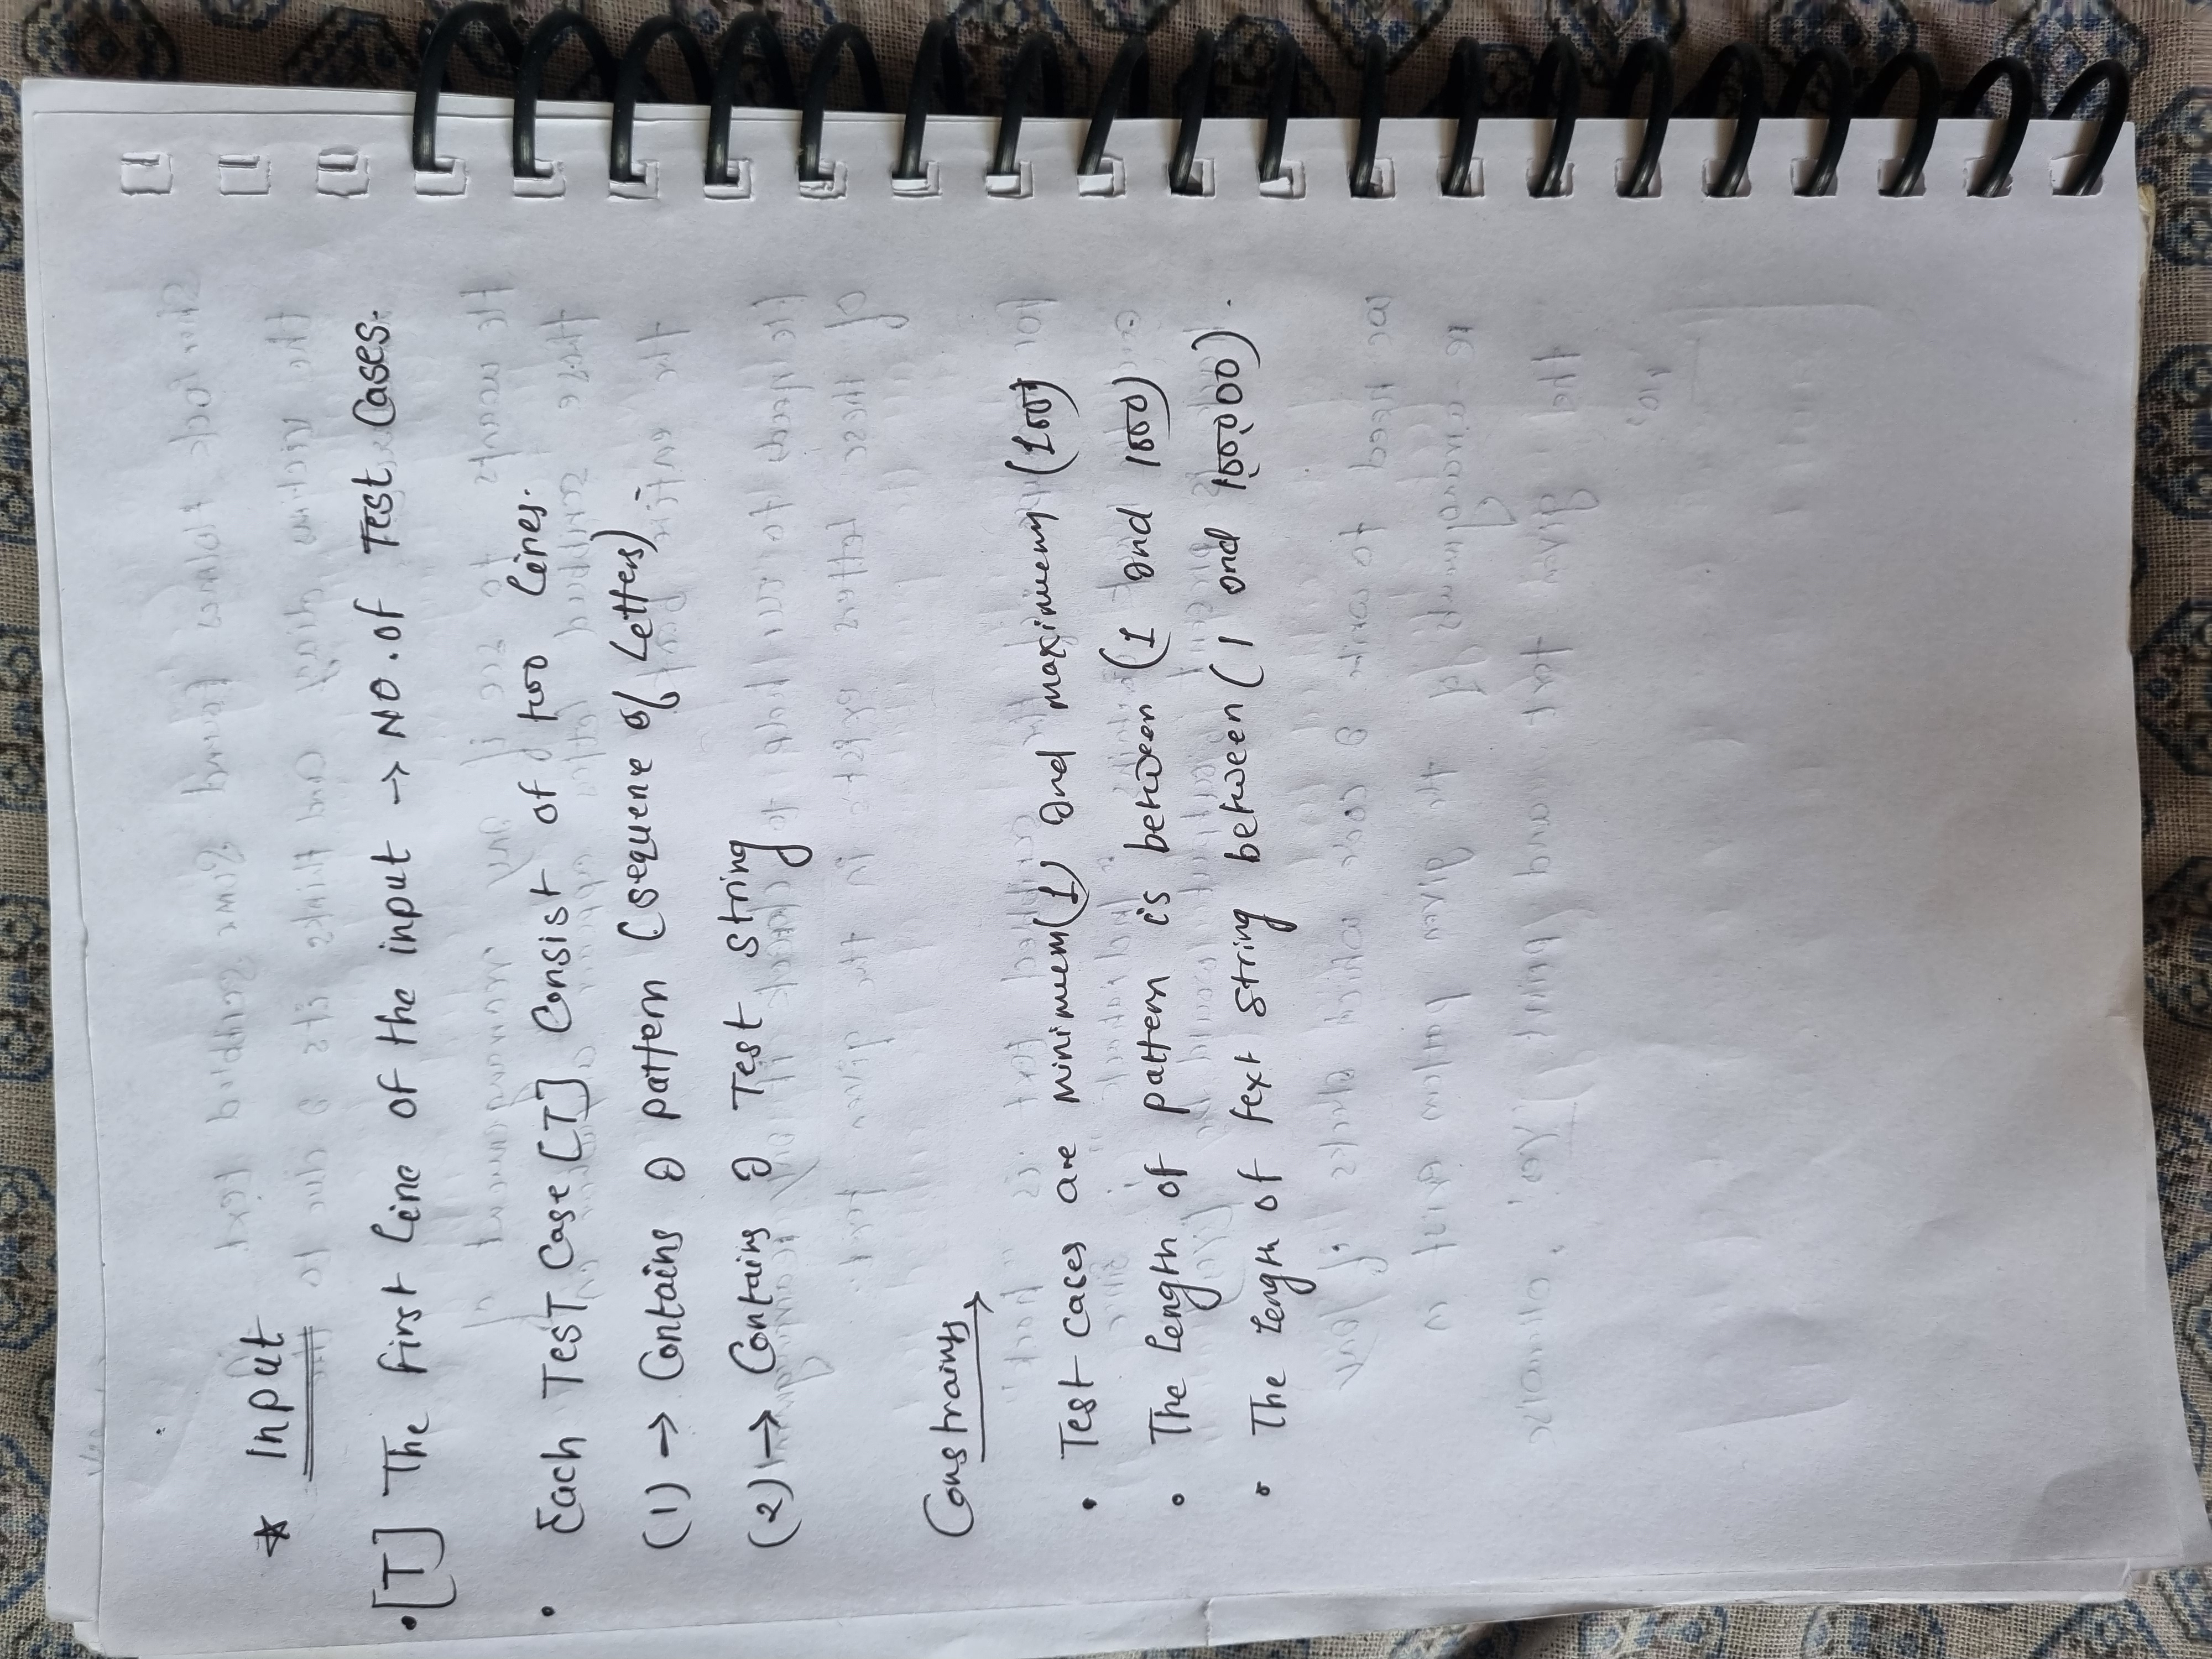 * Input
• [T] The first Line of the input → NO. of Test Cases.
• Each Test Case [T] Consist of two Lines.
(1) → Contains a pattern (sequene of Letters)
(2) → Contains a Test string
Constrainys →
• Test cases are minimuem(1) and maximuem (100)
• The Length of pattern is between (1 and 1000)
• The Length of text string between (1 and 100,000).